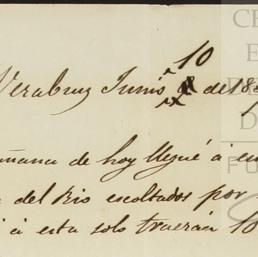 10
Veracruz Junio 8 de 18
añana de hoy llegué á
del Rio escoltados por
á esta solo traerán 10